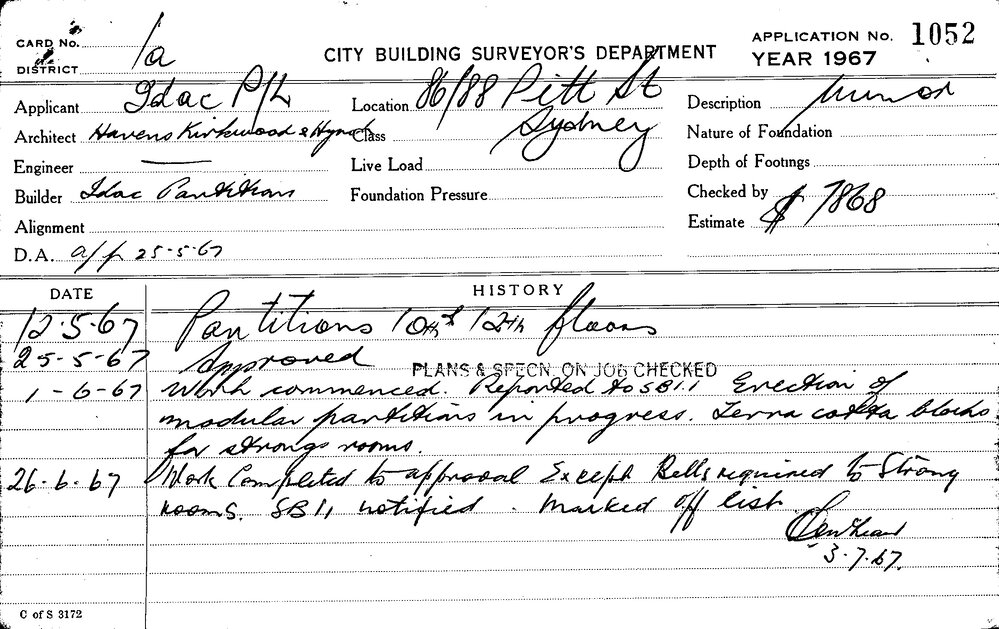 CARD No. 1a
CITY BUILDING SURVEYOR'S DEPARTMENT
APPLICATION No. 1052
DISTRICT
YEAR 1967
Applicant Idac P/L
Location 86/88 Pitt St
Sydney
Description Minor
Architect Havens Kirkwood & Hynch
Class
Nature of Foundation
Engineer —
Live Load
Depth of Footings
Builder Idac Partitions
Foundation Pressure
Checked by
Estimate $ 7868
Alignment
D.A. a/p 25-5-67
DATE HISTORY
12.5.67 Partitions 10th & 12th floors
25-5-67 Approved
PLANS & SPECN. ON JOB CHECKED
1-6-67 Work commenced. Reported to SB1.1 Erection of
modular partitions in progress. Terra cotta blocks
for strongs rooms.
26.6.67 Work Completed to approval Except Bells required to Strong
rooms. SB1, notified. Marked off list
3-7.67.
C of S 3172